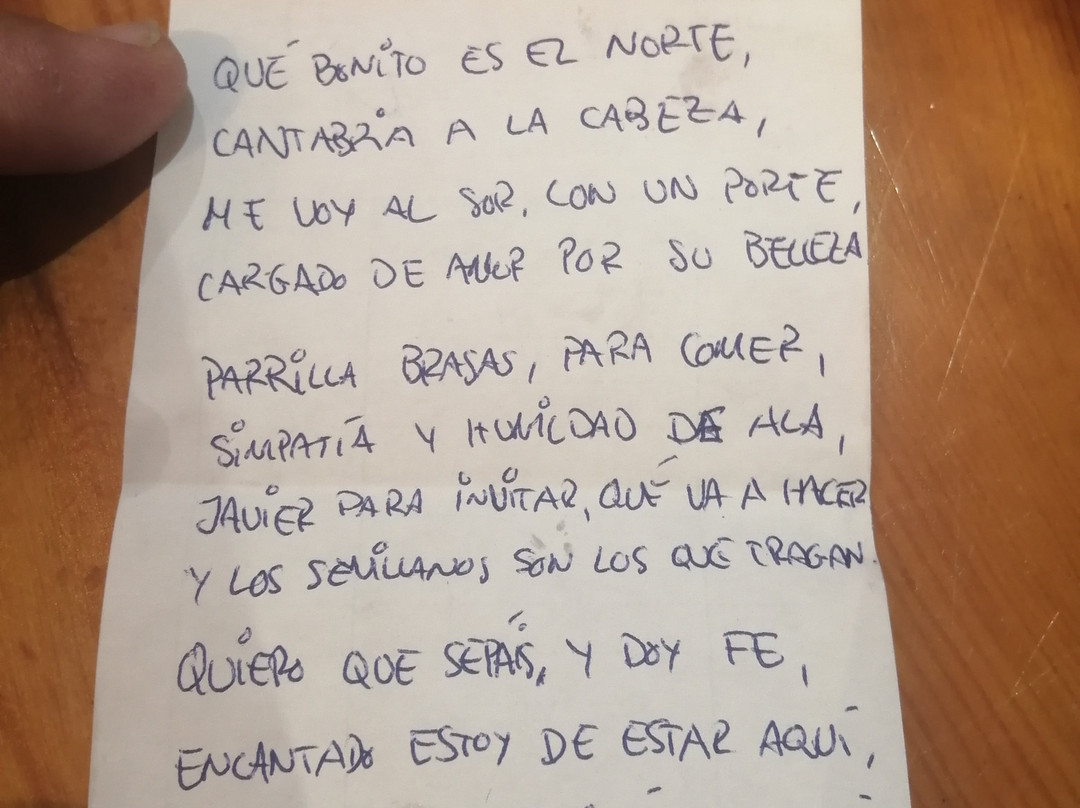 QUÉ BONITO ES EL NORTE,
CANTABRIA A LA CABEZA,
ME VOY AL SOR, CON UN PORTE,
CARGADO DE AMOR POR SU BELLEZA
PARRILLA BRASAS, PARA COMER,
SIMPATÍA Y HUMILDAD DE ALA,
JAVIER PARA INVITAR, QUÉ VA A HACER
Y LOS SEVILLANOS SON LOS QUE TRAGAN.
QUIERO QUE SEPÁIS, Y DOY FE,
ENCANTADO ESTOY DE ESTAR AQUÍ,